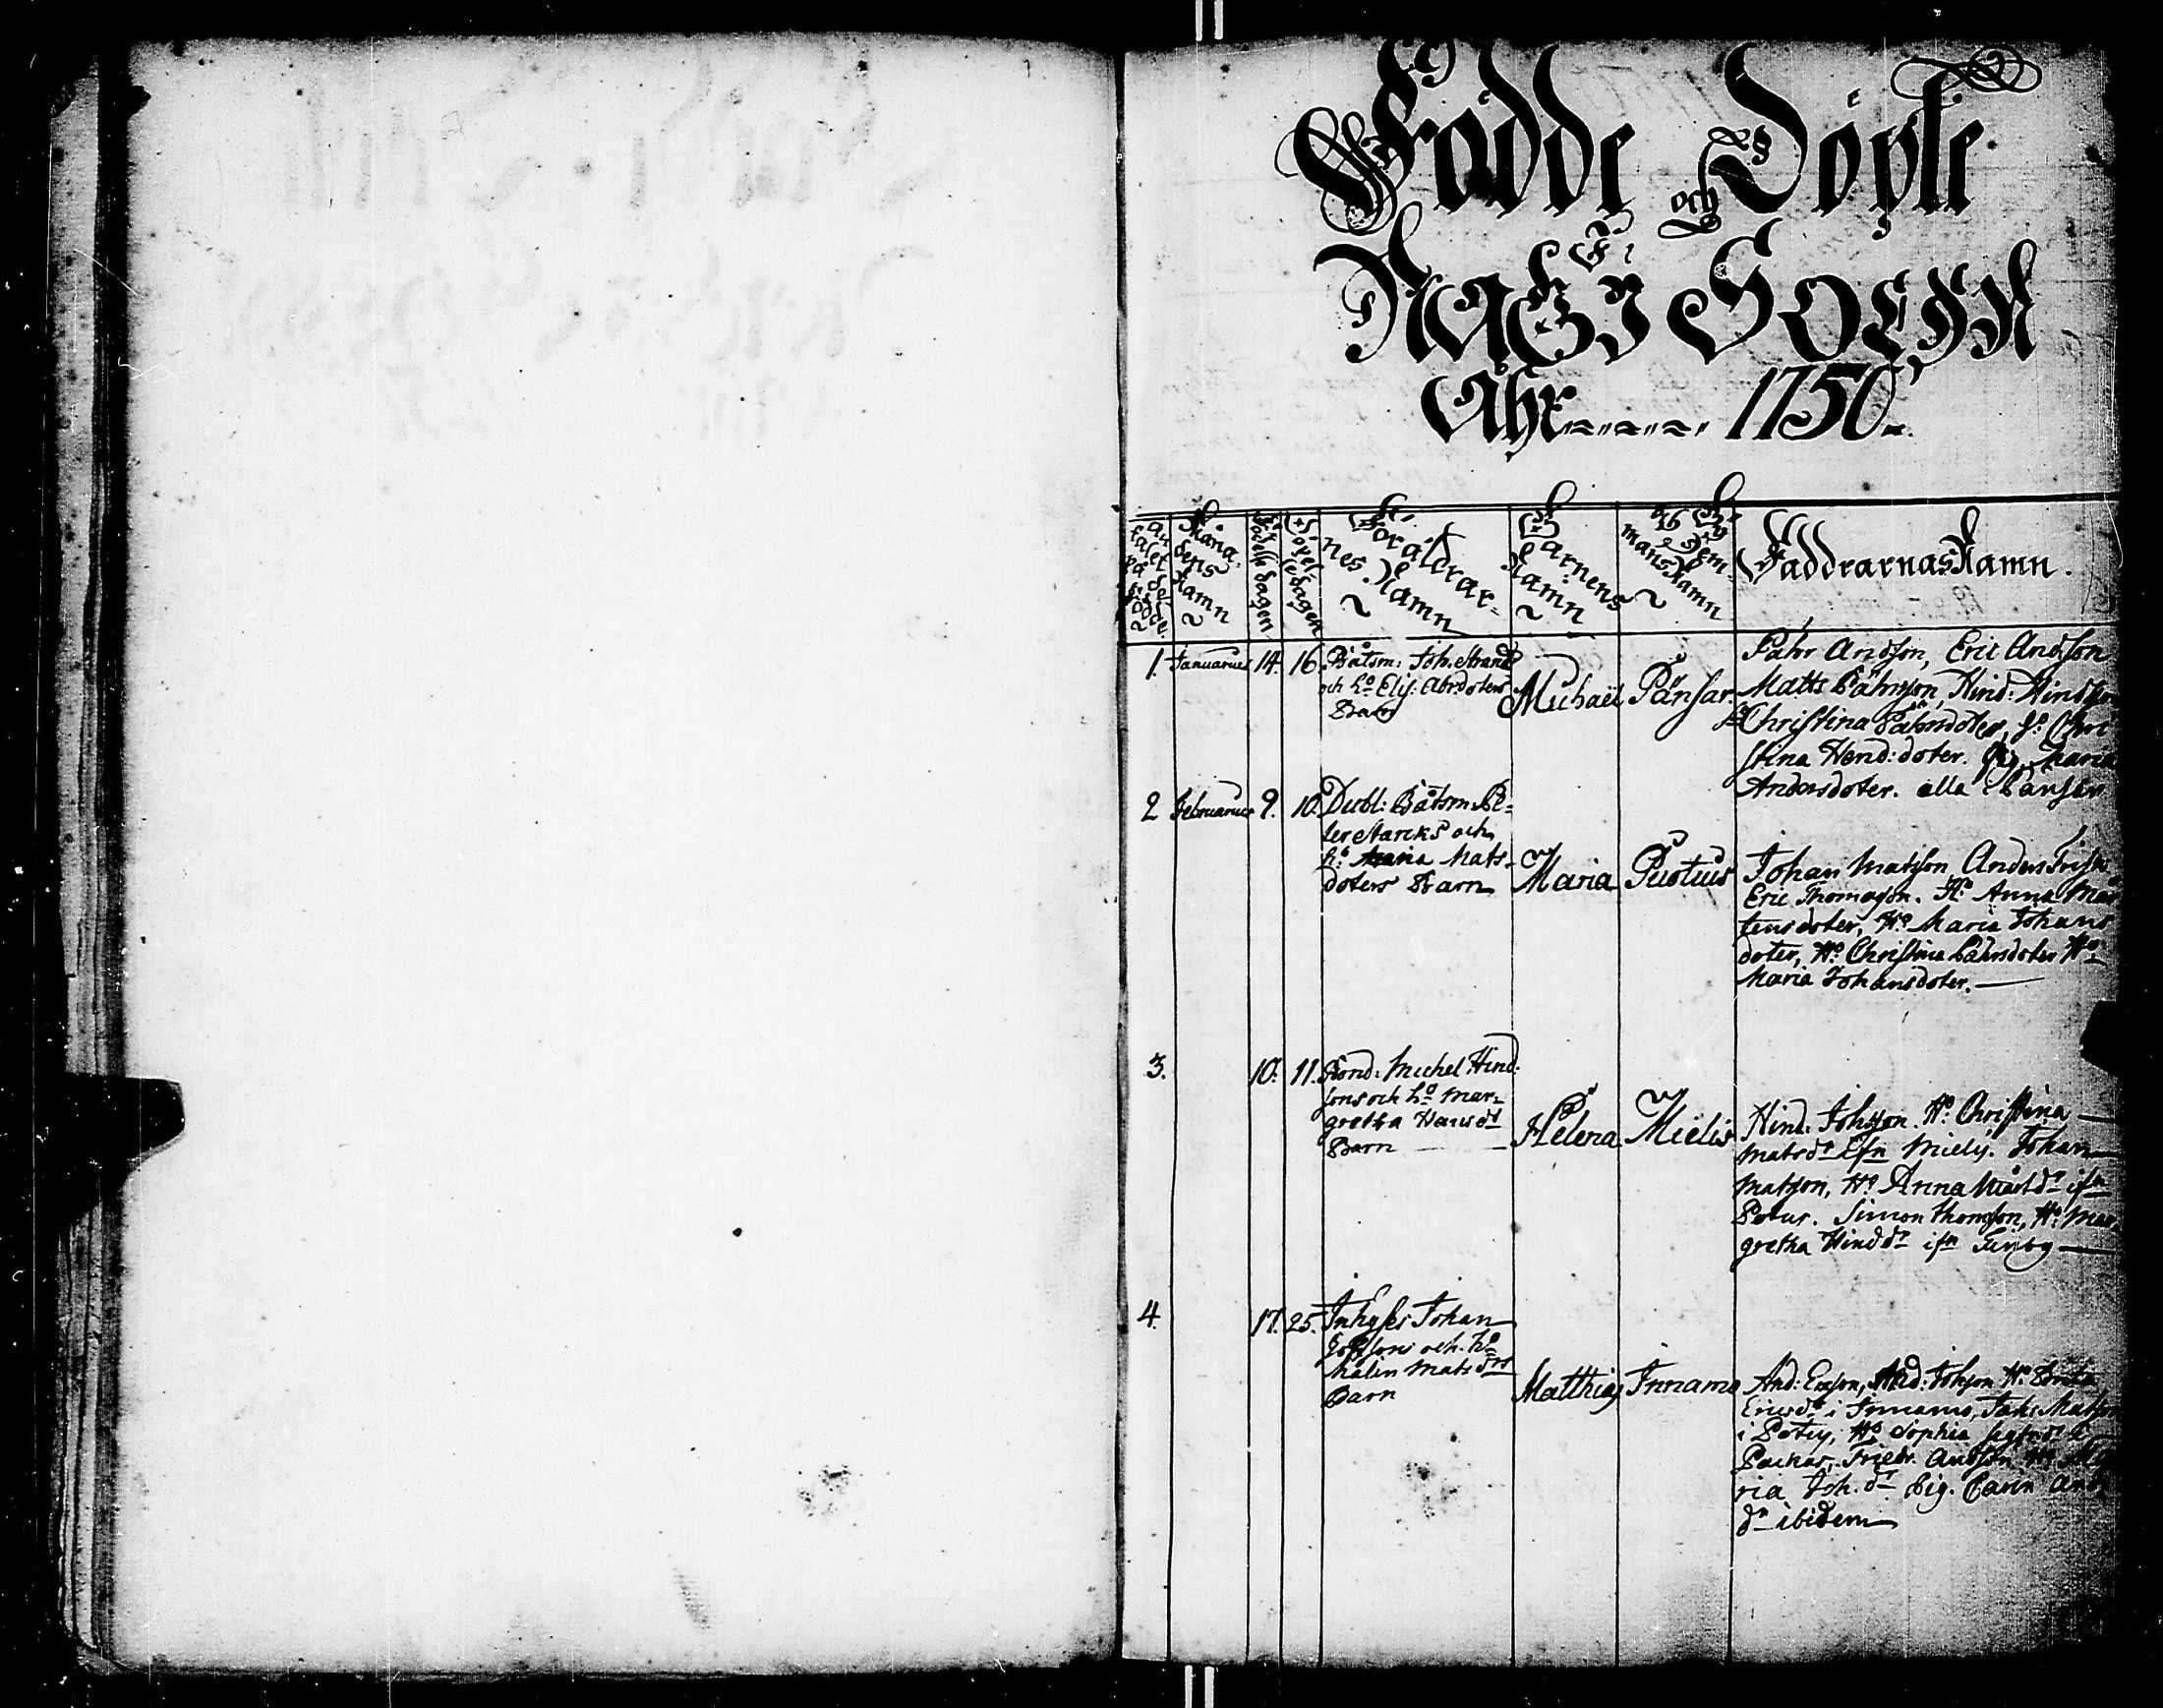 Födde och Döpte
i
NAGU SOCKN
Åhr 1750.
Antalet på de födde.
Månadens Namn
Födelse dagen
Döpelse dagen
Föräldrarnes Namn
Barnens Namn
By och Hemmans Namn
Faddrarnas Namn.
1. Januarius 14. 16. Båtsm: Joh. Strand
och h:o Elis: Abr:doters
Barn
Michaël Pänsar.
Påhr Andsson, Eric Andsson
Matts Påhrsson, Hind: Hindsson
Christina Påhrsdoter, H:o Chri
stina Hend:doter. Pig. Maria
Andersdoter. alla i Pänsar
2 Februarius 9. 10. Dubl: Båtsm. Pe-
ter Starcks och
h:o Maria Mats-
doters Barn
Maria Puotuis
Johan Matsson, Anders
Eric Thomasson. H:o Anna Mår
tensdoter, H:o Maria Johans
doter, H:o Christina Påhrsdoter H:o
Maria Johansdoter.
3. 10. 11. Bond: Michel Hind:
sons och h:o Mar-
gretha Hansd:r
Barn
Helena Mielis
Hind: Johsson. H:o Christina
Matsd:r ifn Mielis. Johan
Matsson, H:o Anna Mårtd:r ifn
Potus. Simon Thomsson, H:o Mar
gretha Hindd:r ifn Finby
4. 17. 25. Inhyses Johan
sons och h:o
Malin Matsd:rs
Barn
Matthias Innamo
And: Ersson, And: Johsson H:o Brita
Ericsd:r i Innamo, Joh: Matsson
i Potis, H:o Sophia i
Packas, Friedr. Andsson H:o Ma
ria Joh.d:r Pig. Carin And
d:r ibidem